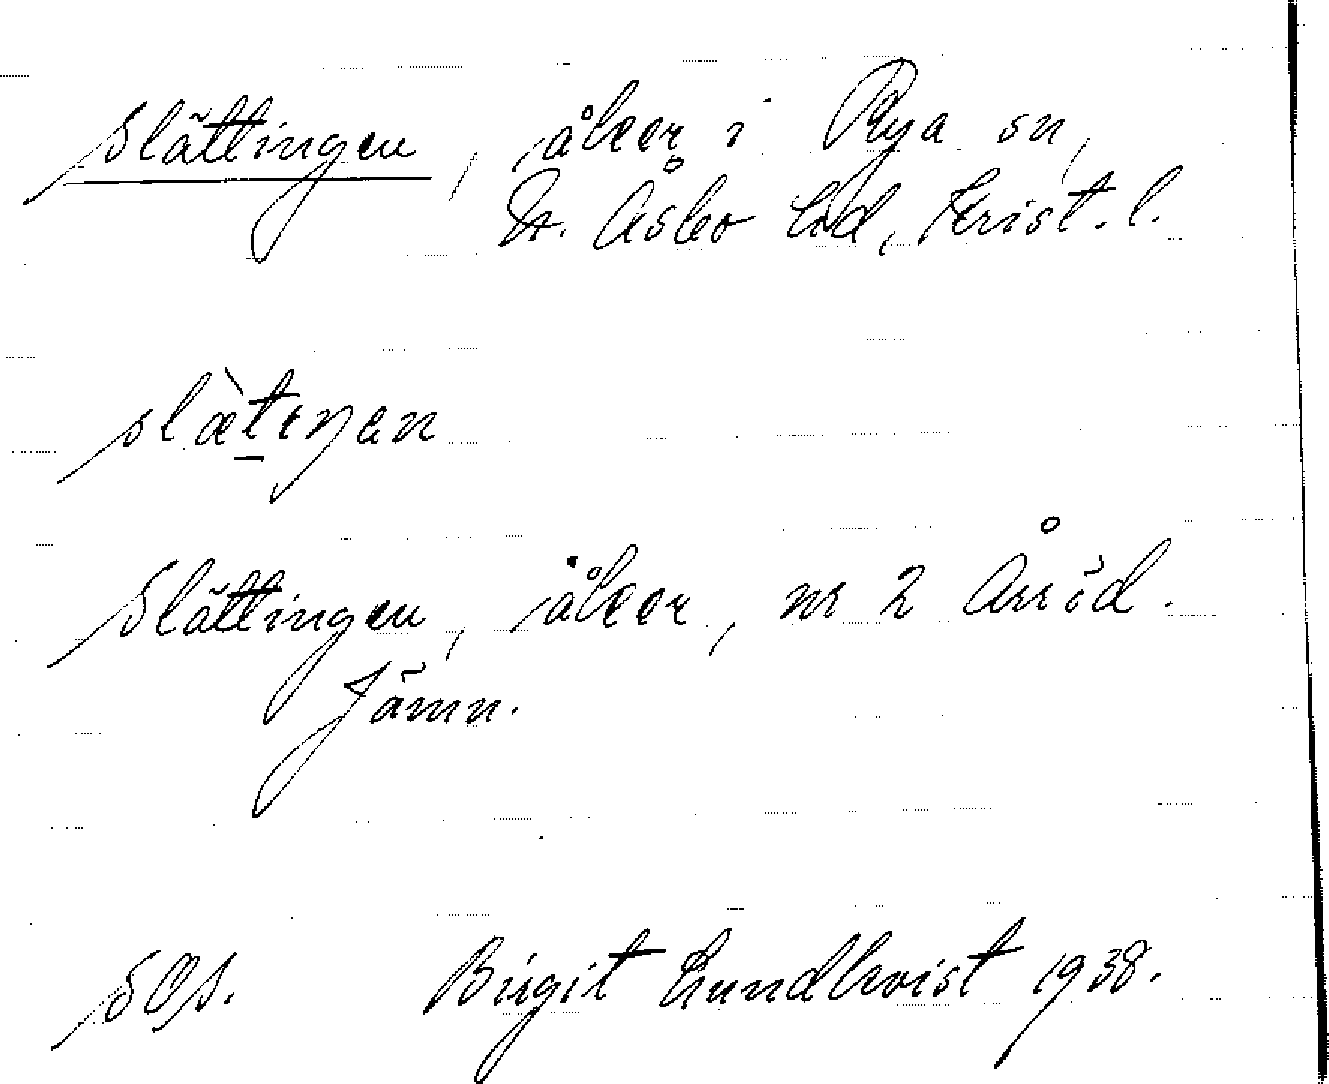 Slättingen, åker i Rya sn,
N. Åsbo hd, Krist. l.
slæ̀tıŋen
Slättingen, åker, nr 2 Åröd.
Jämn.
SOA. Birgit Lundkvist 1938.